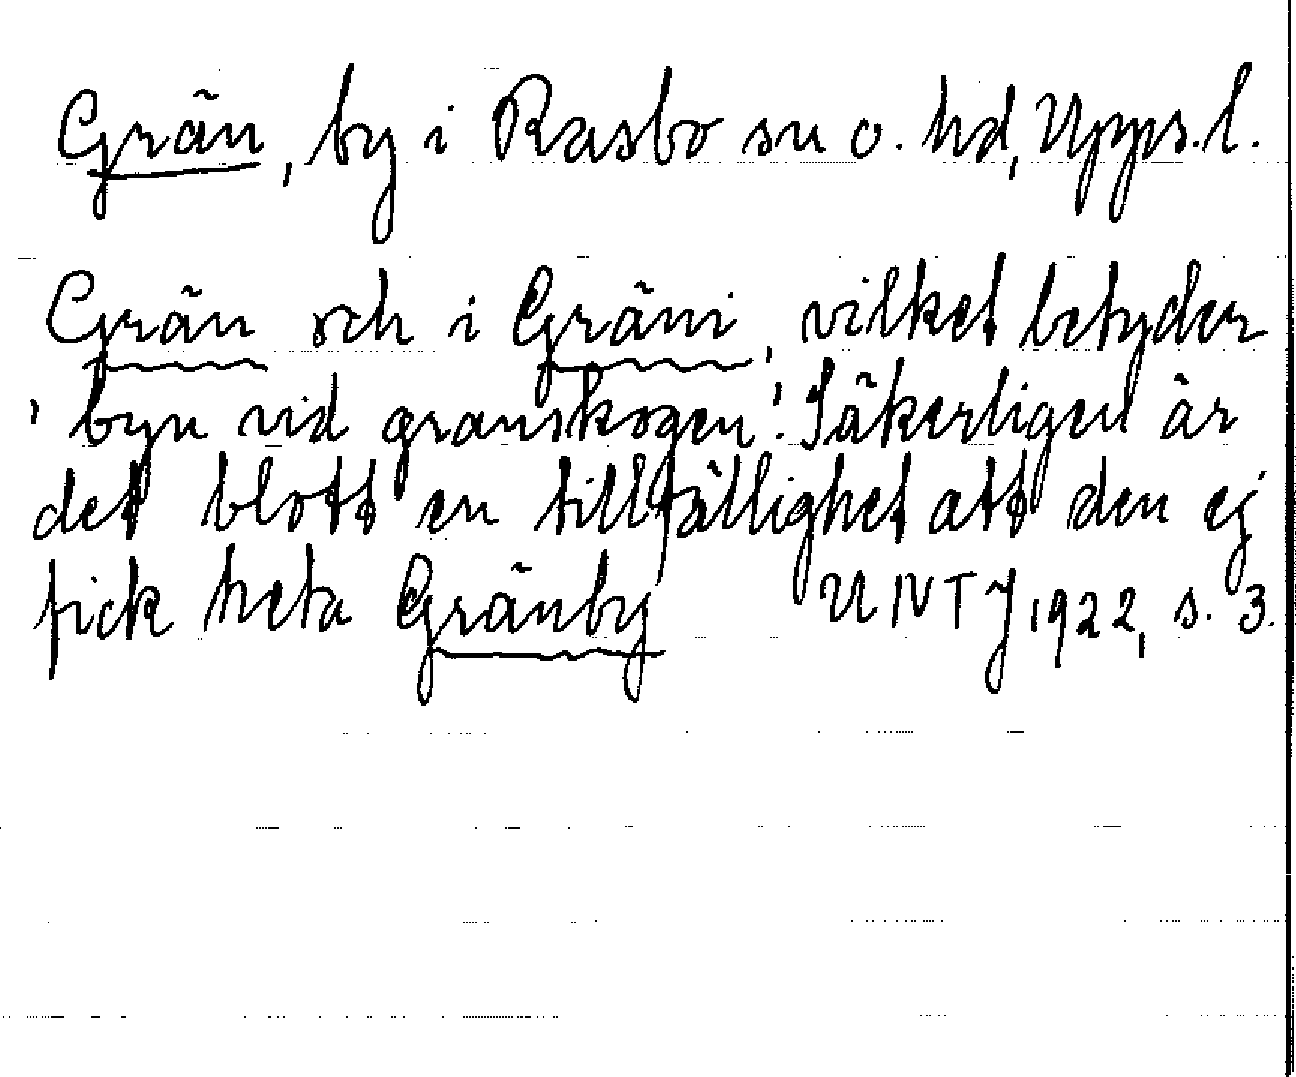 Grän, by i Rasbo sn o. hd, Upps.l.
Grän och i Gräni, vilket betyder
'byn vid granskogen'. Säkerligen är
det blott en tillfällighet att den ej
fick heta Gränby UNT J 1922, s. 3.